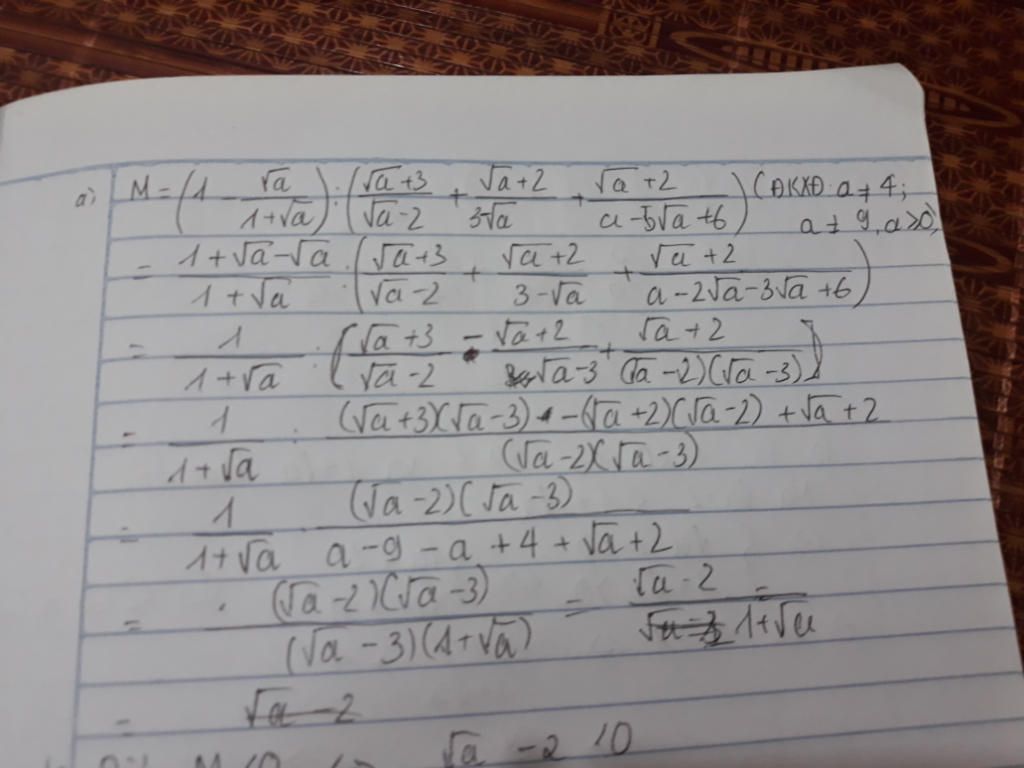 a) M = (1 - √a/(1+√a)) : ((√a+3)/(√a-2) + (√a+2)/(3-√a) + (√a+2)/(a-5√a+6)) (ĐKXĐ: a ≠ 4;
a ≠ 9, a ≥ 0)
= (1+√a-√a)/(1+√a) : ((√a+3)/(√a-2) + (√a+2)/(3-√a) + (√a+2)/(a-2√a-3√a+6))
= 1/(1+√a) : [(√a+3)/(√a-2) - (√a+2)/(√a-3) + (√a+2)/((√a-2)(√a-3))]
= 1/(1+√a) : ((√a+3)(√a-3) - (√a+2)(√a-2) + √a+2)/((√a-2)(√a-3))
= 1/(1+√a) · ((√a-2)(√a-3))/(a-9-a+4+√a+2)
= ((√a-2)(√a-3))/((√a-3)(1+√a)) = (√a-2)/(1+√a) =
= √a-2
√a - 2 < 0